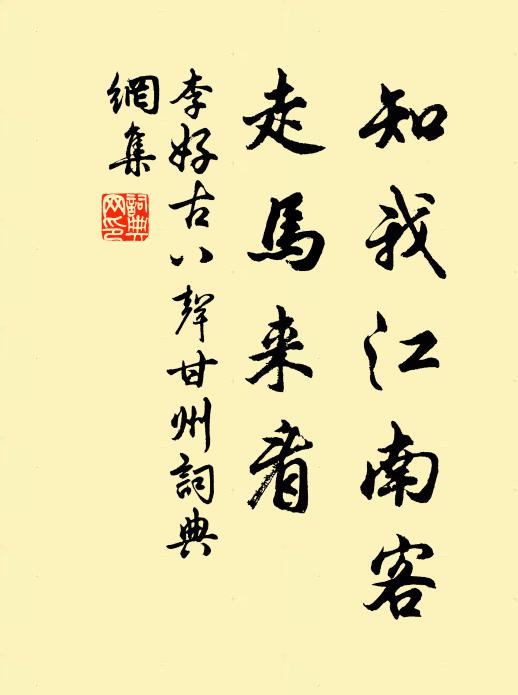 知我江南客
走馬来看
李好古八聲甘州詞典
網集
詞典网印